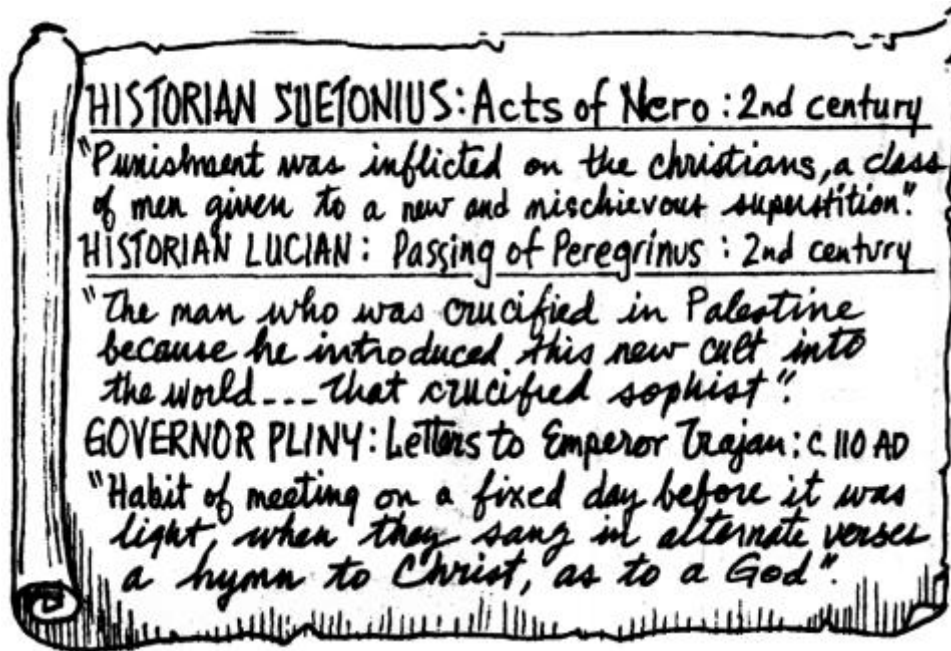 HISTORIAN SUETONIUS: Acts of Nero : 2nd century
"Punishment was inflicted on the christians, a class
of men given to a new and mischievous superstition".
HISTORIAN LUCIAN: Passing of Peregrinus : 2nd century
"The man who was crucified in Palestine
because he introduced this new cult into
the world --- that crucified sophist".
GOVERNOR PLINY: Letters to Emperor Trajan: c. 110 AD
"Habit of meeting on a fixed day before it was
light, when they sang in alternate verses
a hymn to Christ, as to a God".